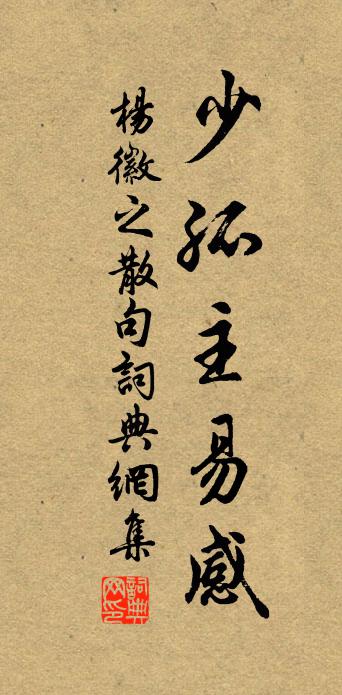 少孤主易感
楊徽之散句詞典網集
詞典网印